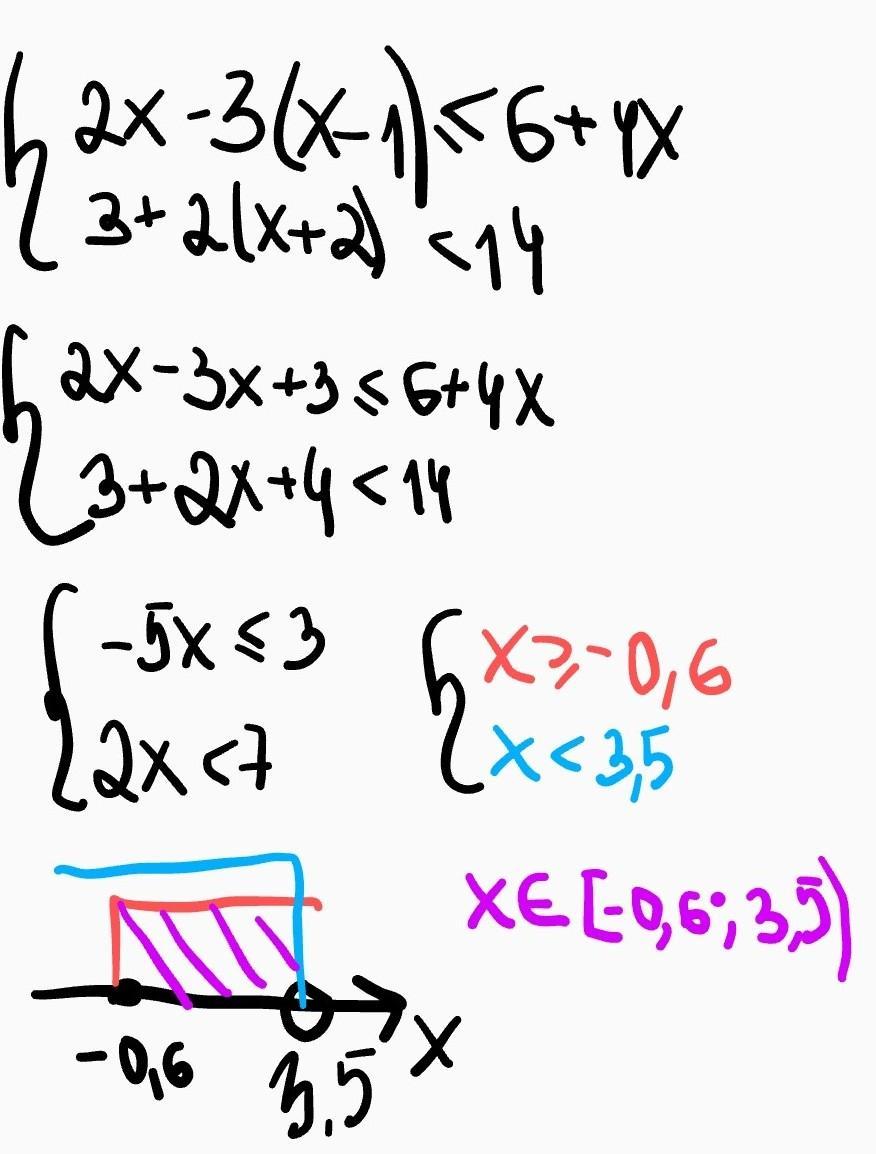 { 2x - 3(x - 1) ≤ 6 + 4x
3 + 2(x + 2) < 14
{ 2x - 3x + 3 ≤ 6 + 4x
3 + 2x + 4 < 14
{ -5x ≤ 3
2x < 7
{ x ≥ -0,6
x < 3,5
x ∈ [-0,6; 3,5)
-0,6 3,5 x